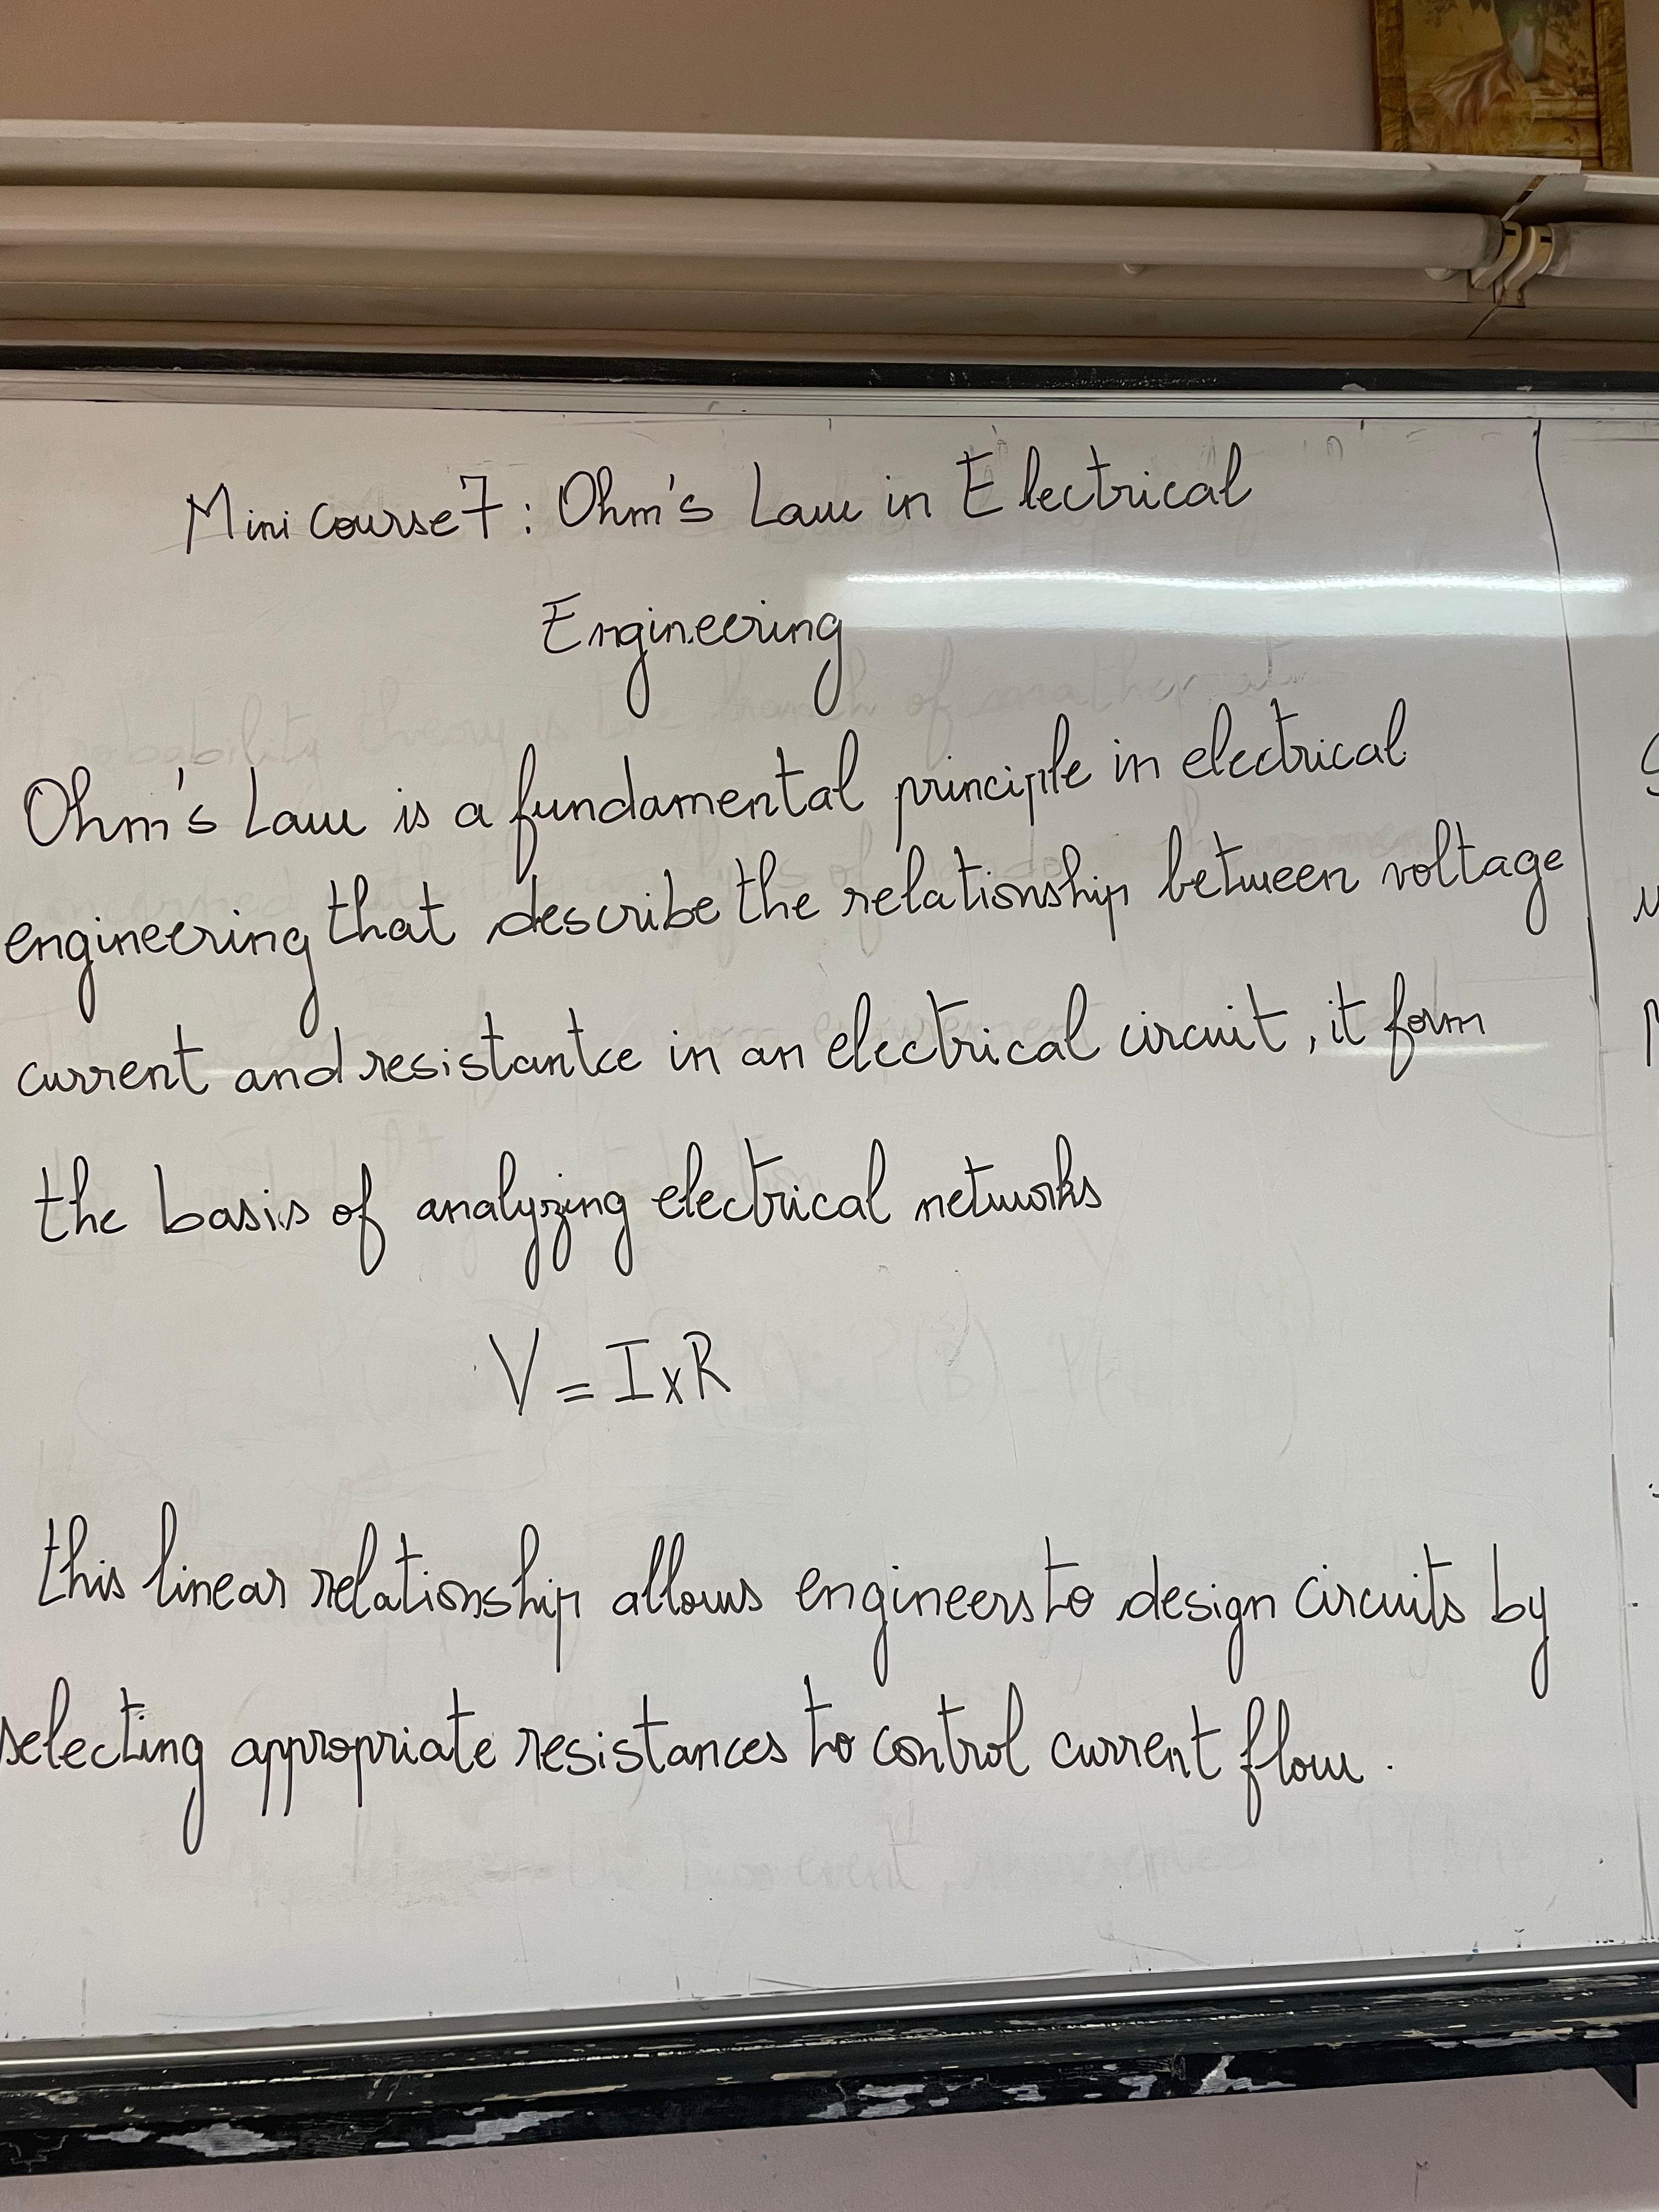 Mini Course 7: Ohm's Law in Electrical
Engineering
Ohm's Law is a fundamental principle in electrical
engineering that describe the relationship between voltage
current and resistantce in an electrical circuit, it form
the basis of analyzing electrical networks
V = I x R
this linear relationship allows engineers to design circuits by
selecting appropriate resistances to control current flow.